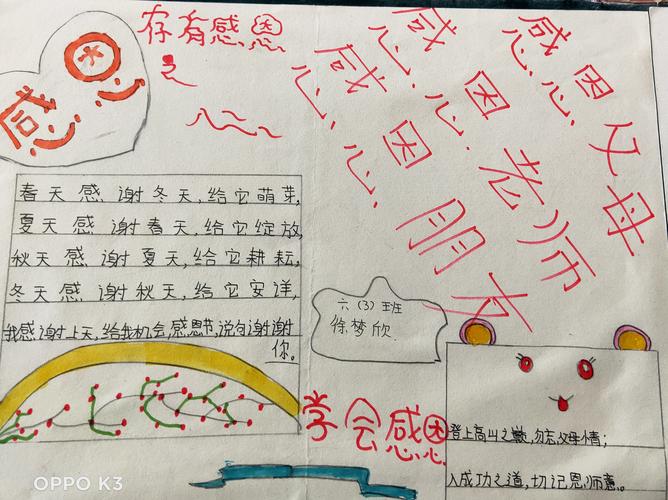 感恩
存有感恩
之心
感恩父母
感恩老师
感恩朋友
春天感谢冬天,给它萌芽,
夏天感谢春天,给它绽放,
秋天感谢夏天,给它耕耘,
冬天感谢秋天,给它安详,
我感谢上天,给我机会,感恩节,说句谢谢
你。
六(3)班
徐梦欣
学会感恩
登上高山之巅,勿忘父母情;
入成功之道,切记恩师意。
OPPO K3